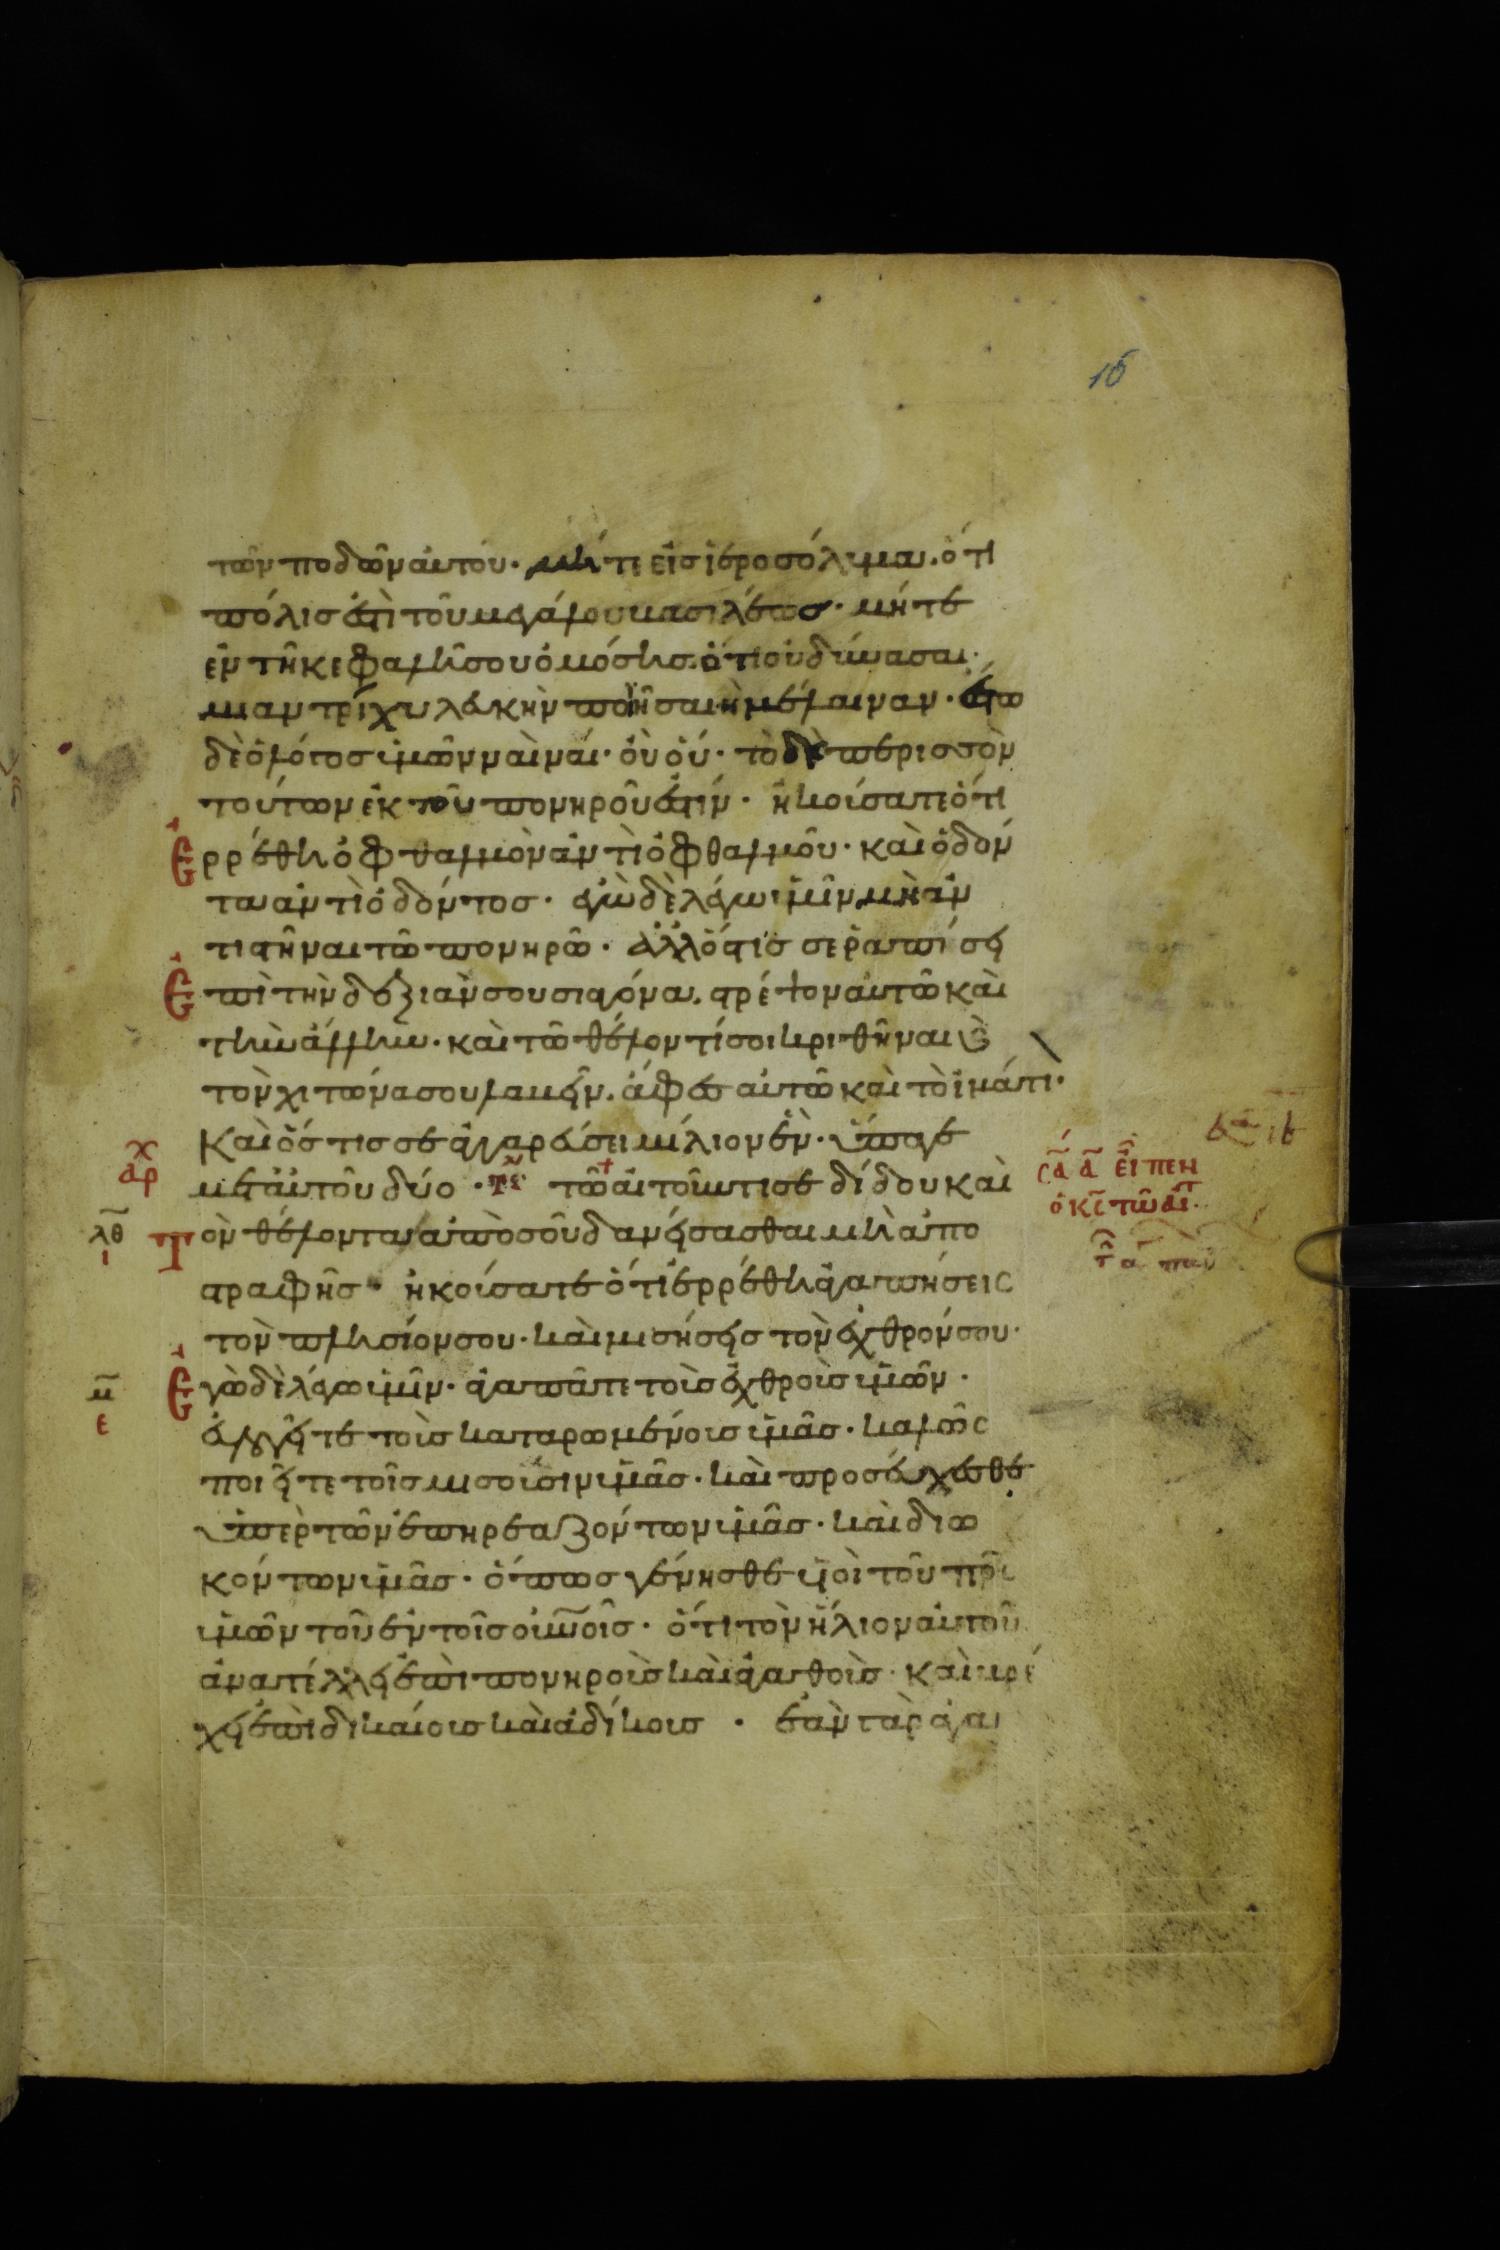 16
τῶν ποδῶν αὐτού· μή τι εἰσ ἱεροσόλυμα· ὅτι
πόλισ ἐστὶ τοῦ μεγάλου βασιλέωσ· μήτε
ἐν τῆ κεφαλῆ σου ὀμόσησ· ὅτι οὐ δύνασαι
μιαν τρίχα λευκὴν ποιῆσαι ἢ μέλαιναν· ἔστω
δὲ ὁ λόγοσ ὑμῶν ναὶ ναί· οὺ οὐ· τὸ δὲ περισσὸν
τούτων ἐκ τοῦ πονηροῦ ἐστίν· ἠκούσατε ὅτι
Ἐρρέθη ὀφθαλμὸν ἀντὶ ὀφθαλμοῦ· καὶ ὀδόν
τα ἀντὶ ὀδόντοσ· ἐγὼ δὲ λέγω ὑμῖν μὴ ἀν
τιστῆναι τῶ πονηρῶ· ἀλλ ὅστισ σε ῥαπίσει
Ἐπὶ τὴν δεξιὰν σου σιαγόνα· στρέψον αὐτῶ καὶ
τὴν ἄλλην· καὶ τῶ θέλοντί σοι κριθῆναι ϗ
τὸν χιτώνα σου λαβεῖν· ἄφεσ αὐτῶ καὶ τὸ ἱμάτι·
Καὶ ὅστισ σε ἀγγαρεύσει μίλιον ἓν· ὕπαγε
χ
ἀρ
μετ αὐτοῦ δύο · τε τῶ αἰτοῦντι σε δίδου καὶ
σα α εἶπεν
ὁ κς τῶ αἰτ
λθ
ι
Τὸν θέλοντα ἀπὸ σοῦ δανείσασθαι μὴ ἀπο
στραφῆσ· ἠκούσατε ὅτι ἐρρέθη ἀγαπήσεις
τὸν πλησίον σου· καὶ μισήσεισ τὸν ἐχθρόν σου·
μ
ε
Ἐγὼ δὲ λέγω ὑμῖν· ἀγαπᾶτε τοὺσ ἐχθροὺσ ὑμῶν·
εὐλογεῖτε τοὺσ καταρωμένουσ ὑμᾶσ· καλῶς
ποιεῖτε τοῖσ μισούσιν ὑμᾶσ· καὶ προσεύχεσθε
ὑπὲρ τῶν ἐπηρεαζόντων ὑμᾶσ· καὶ διω
κόντων ὑμᾶσ· ὅπωσ γένησθε υἱοὶ τοῦ πρς
ὑμῶν τοῦ ἐν τοῖσ οὐνοῖσ· ὅτι τὸν ἥλιον αὐτοῦ
ἀνατέλλει ἐπὶ πονηροὺσ καὶ ἀγαθοὺσ· καὶ βρέ
χει ἐπὶ δικαίουσ καὶ ἀδίκουσ · ἐὰν γὰρ ἀγα